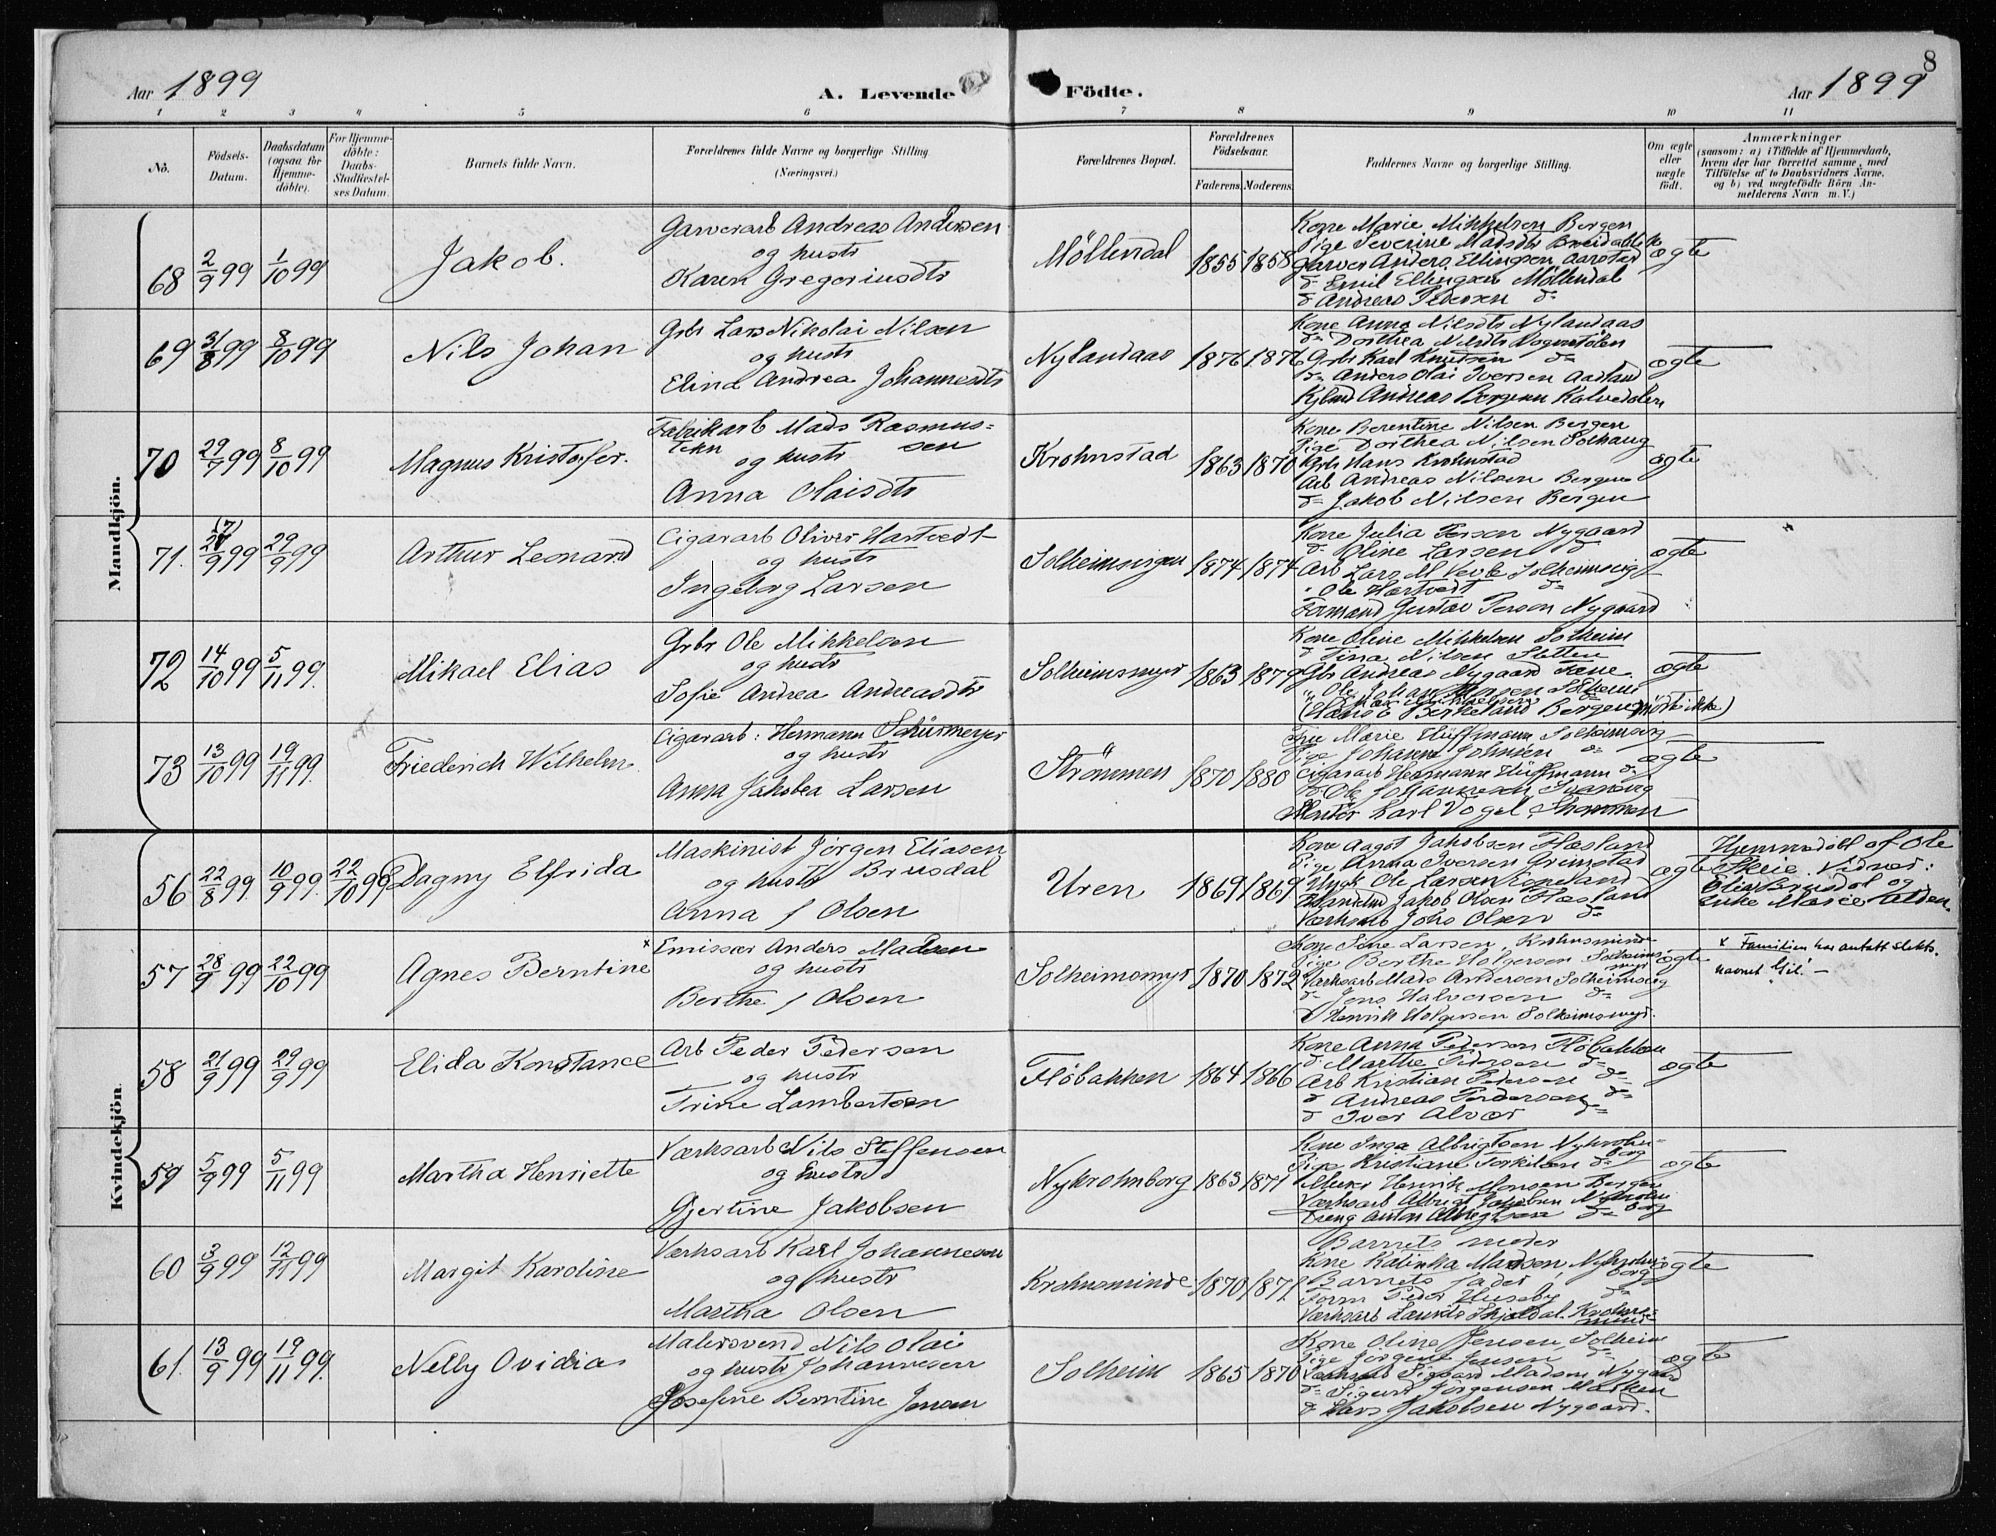 8
Aar 1899
A. Levende Födte.
Aar 1899
1 2 3 4 5 6 7 8 9 10 11
No.
Födsels-Datum.
Daabsdatum (ogsaa for Hjemme-döbte).
For Hjemme-döbte: Daabs-Stadfæstel-ses Datum.
Barnets fulde Navn.
Forældrenes fulde Navne og borgerlige Stilling (Næringsvei.)
Forældrenes Bopæl.
Forældrenes Födselsaar.
Faderens. Moderens.
Faddernes Navne og borgerlige Stilling.
Om ægte eller uægte födt.
Anmærkninger
(saasom: a) i Tilfælde af Hjemmedaab, hvem der har forrettet samme, med Tilföielse af to Daabsvidners Navne, og b) ved uægtefödte Börn An-melderens Navn m. V.)
Mandkjön.
68 2/9 99 1/10 99 Jakob.
Garverarb Andreas Andersen
og hustr
Karen Gregoriusdtr
Möllendal 1855 1858
Kone Marie Mikkelsen Bergen
Pige Severine Madsdtr
Garver Anders Ellingsen Aarstad
do Emil Ellingsen Möllendal
do Andreas Pedersen do
ægte
69 31/8 99 8/10 99 Nils Johan
Gbr Lars Nikolai Nilsen
og hustr
Elina Andrea Johannesdtr
Nylandaas 1876 1876
Kone Anna Nilsdtr Nylandaas
do Dorthea Nilsdtr
Gbr Karl Knutsen do
do Anders Olai Iversen Aadland
Andreas Borgen Kalvedalen
ægte
70 29/7 99 8/10 99 Magnus Kristofer.
Fabrikarb Mads Rasmus=
sen
og hustr
Anna Olaisdtr
Krohnstad 1863 1870
Kone Berentine Nilsen Bergen
Pige Dorthea Nilsen Solhaug
Gbr Hans Krohnstad
Arb Andreas Nilsen Bergen
do Jakob Nilsen Bergen
ægte
71. 9 99 29/9 99 Arthur Leonard
Cigararb Oliver Hartvedt
og hustr
Ingeborg Larsen
Solheimsvigen 1874 1874
Kone Julia Person Nygaard
do Oline Larsen do
Arb Lars M Solheimsvig
" Ole Hartvedt do
Formand Gustav Person Nygaard
ægte
72 14/10 99 5/11 99. Mikael Elias
Gbr Ole Mikkelsen
og hustr
Sofie Andrea Andreasdtr
Solheimsmyr 1863 1879
Kone Oline Mikkelsen Solheim
" Tina Nilsen Sletten
Gbr Andreas Nygaard Fane
" Ole Johan Solheim
(Hans Birkeland Bergen mödte ikke)
ægte
73 13/10 99 19/11 99. Friederich Wilhelm.
Cigararb: Hermann Schürmeyer
og hustr
Anna Jakobea Larsen
Strömmen 1870 1880
Marie Hüffmann Solheimsvig
Pige Johanne Johnsen do
Cigararb Hermann Hüffmann do
do Ole Johannesen
Karl Vogel, Strömmen
ægte
Kvindekjön.
56 22/8 99. 10/9 99. 22/10 99 Dagny Elfrida
Maskinist Jörgen Eliasen
og hustr Brusdal
Anna f Olsen
Uren 1869 1869
Kone Aagot Jakobsen Fløsland
Pige Anna Iversen Grimstad
Ole Larsen
Jakob Olsen
Værksarb Johs Olsen do
ægte
Hjemmedöbt af Ole
Skeie. Vidner:
Elias Brusdal og
Marie
57 28/9 99 22/10 99 Agnes Berntine x
Emissær Anders Madsen
og hustr
Berthe f Olsen
Solheimsmyr 1870 1872
Kone Sine Larsen, Krohnsminde
Pige Berthe Holgersen Solheims
myr
Værksarb Mads Andersen Solheimsvig
do Jens Halvorsen do
Henrik Holgersen Solheimsmyr.
ægte
x Familien har antatt slekts-
navnet Gil. —
58 21/9 99 29/9 99 Elida Konstance
Arb Peder Pedersen
og hustr
Trine Lambertsen
Flöbakken 1864 1866
Kone Anna Pedersen Flöbakken
do Marthe Pedersen do
Arb Kristian Pedersen do
do Andreas Pedersen do
do Iver Alvær do
ægte
59 5/9 99 5/11 99 Martha Henriette
Værksarb Nils Steffensen
og hustr
Gjertine Jakobsen
Nykrohnborg 1863 1871
Kone Inga Albrigtsen Nykrohn-
borg
Pige Kristiane Torkilsen do
Murer Henrik Monsen Bergen
Værksarb Albrigt Jakobsen Nykrohn
borg
Dreng Anton Albregtsen do
ægte
60 3/9 99 12/11 99 Margit Karoline
Værksarb Karl Johannesen
og hustr
Martha Olsen
Krohnsminde 1870 1871.
Barnets moder
Kone Kalinka Madsen, Nykrohn
borg
Barnets fader
Form Peder Huseby do
Værksarb Laurits Skjoldal. Krohns-
minde
ægte
61. 13/9 99 19/11 99. Nelly Ovidia
Malersvend Nils Olai
og hustr Johannesen
Josefine Berntine Jensen
Solheim 1865 1870
Kone Oline Jensen, Solheim
Pige Jörgine Jensen do
Værksarb Sigvard Madsen Nygaard
do Sigurd Jörgensen
do Lars Jakobsen Nygaard.
ægte